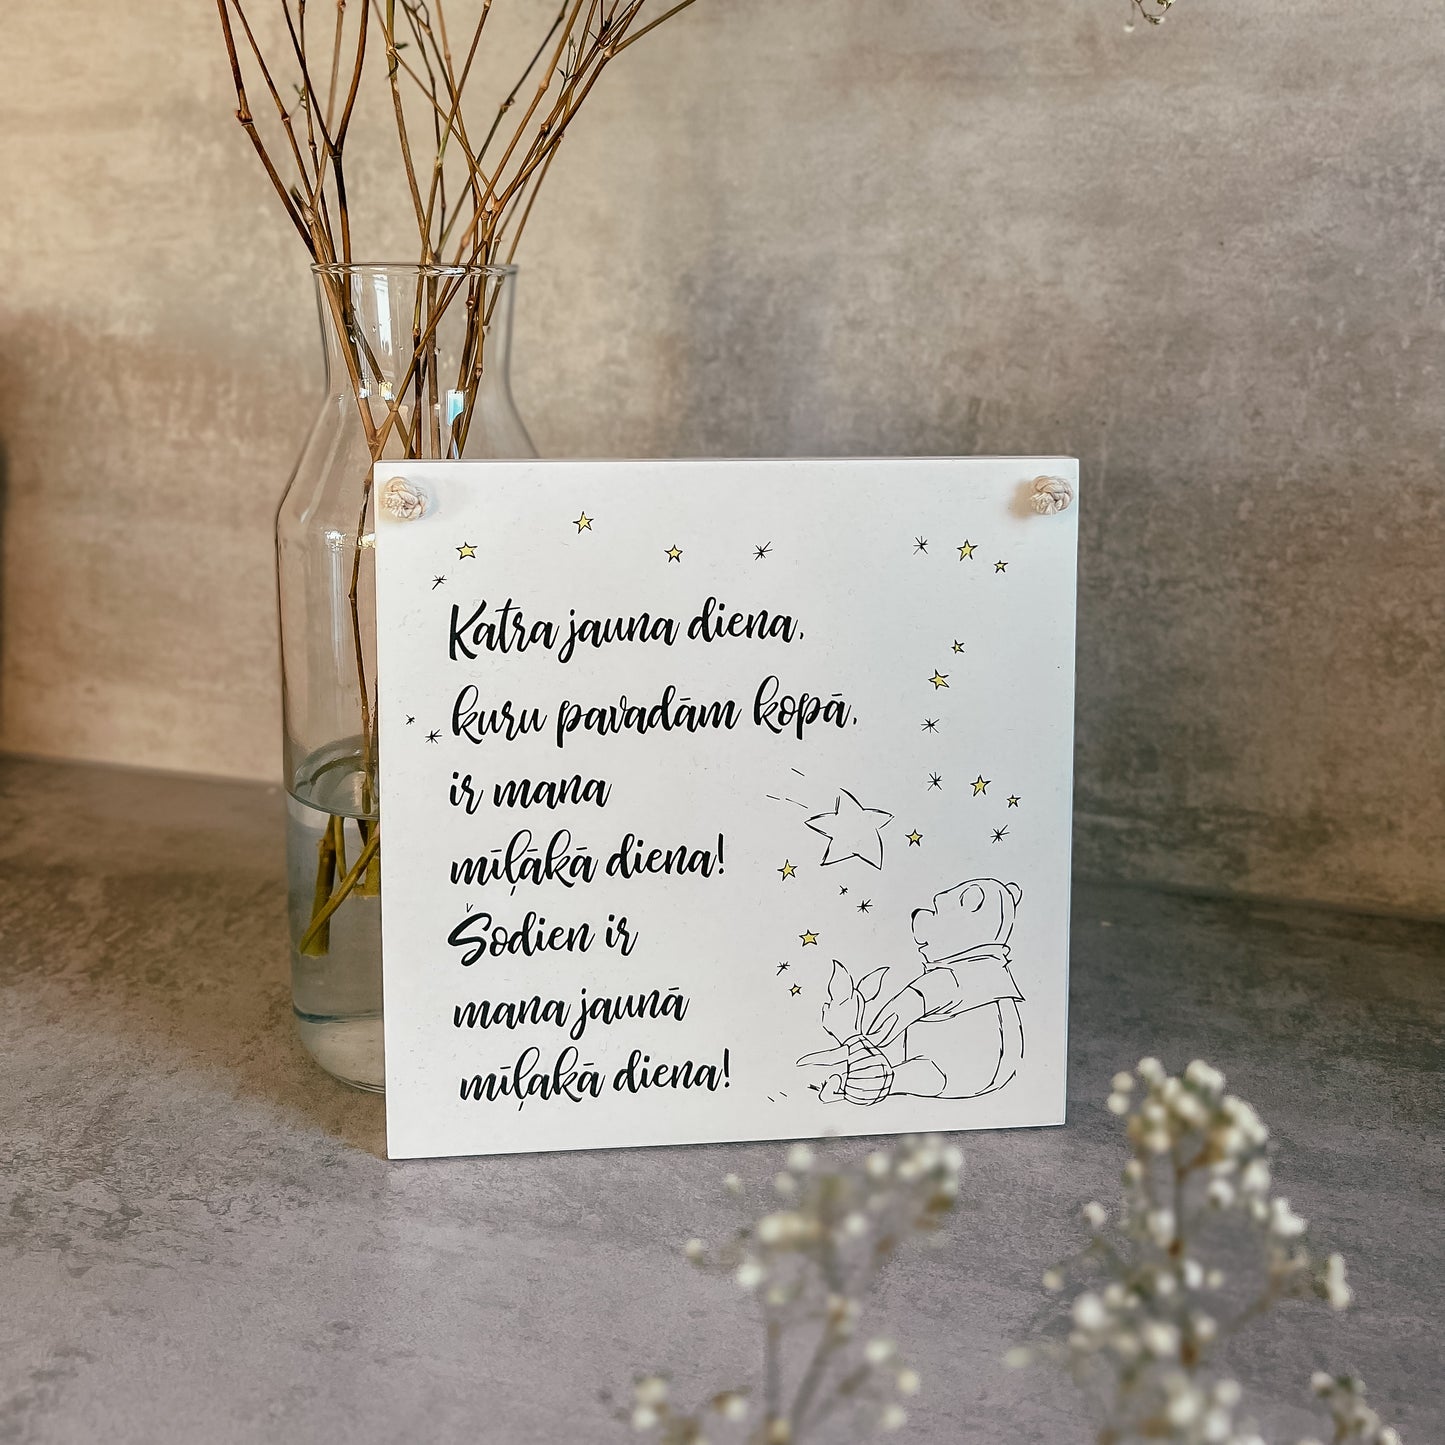 Katra jauna diena,
kuru pavadām kopā,
ir mana
mīļākā diena!
Šodien ir
mana jaunā
mīļakā diena!